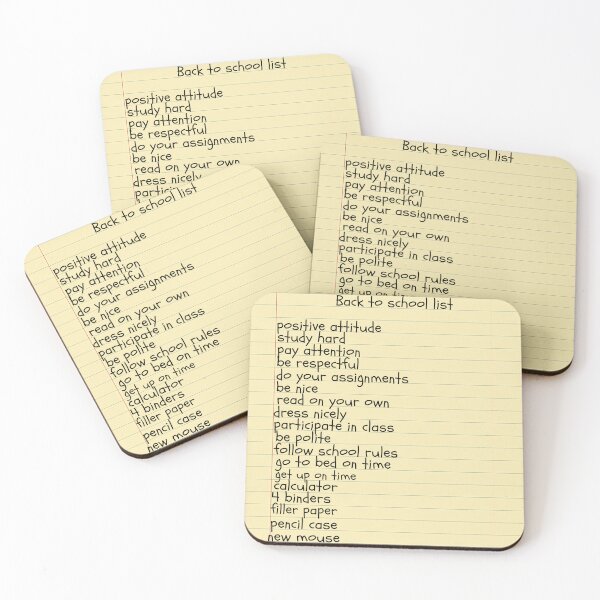 Back to school list
positive attitude
study hard
pay attention
be respectful
do your assignments
be nice
read on your own
dress nicely
partici
Back to school list
positive attitude
study hard
pay attention
be respectful
do your assignments
be nice
read on your own
dress nicely
participate in class
be polite
follow school rules
go to bed on time
get up on time
Back to school list
positive attitude
study hard
pay attention
be respectful
do your assignments
be nice
read on your own
dress nicely
participate in class
be polite
follow school rules
go to bed on time
get up on time
calculator
4 binders
filler paper
pencil case
new mouse
Back to school list
positive attitude
study hard
pay attention
be respectful
do your assignments
be nice
read on your own
dress nicely
participate in class
be polite
follow school rules
go to bed on time
get up on time
calculator
4 binders
filler paper
pencil case
new mouse